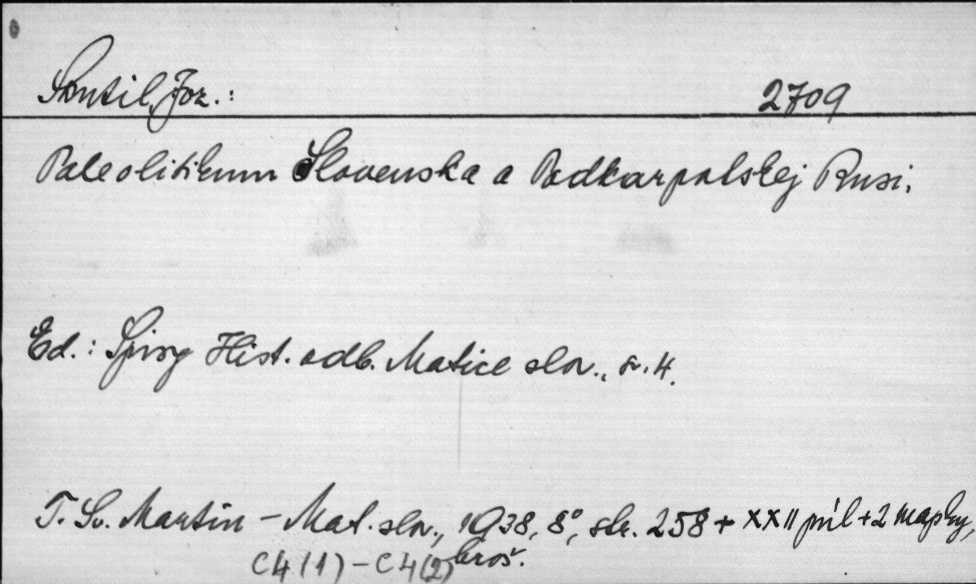 Skutil, Joz.: 2709
Paleolitikum Slovenska a Podkarpatskej Rusi.
Ed.: Spisy Hist. odb. Matice slov., sv. 4.
T. Sv. Martin - Mat. slov., 1938, 8°, str. 258 + XXII príl + 2 mapky,
brož.
C4(1) - C4(2)